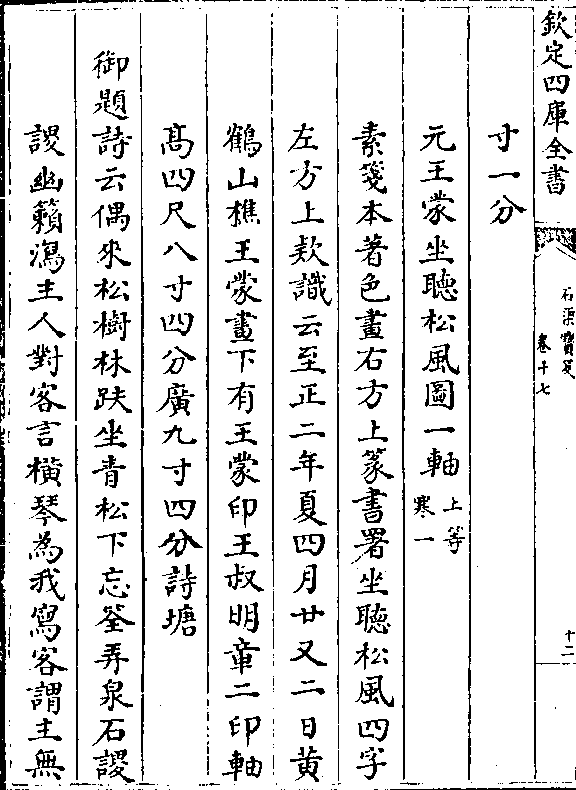 欽定四庫全書
石渠寶笈
卷十七
十二
寸一分
元王蒙坐聽松風圖一軸 上等
寒一
素箋本著色畫右方上篆書署坐聽松風四字
左方上款識云至正二年夏四月廿又二日黄
鶴山樵王蒙畫下有王蒙印王叔明章二印軸
高四尺八寸四分廣九寸四分詩塘
御題詩云偶來松樹林趺坐青松下忘筌弄泉石謖
謖幽籟瀉主人對客言橫琴為我寫客謂主無